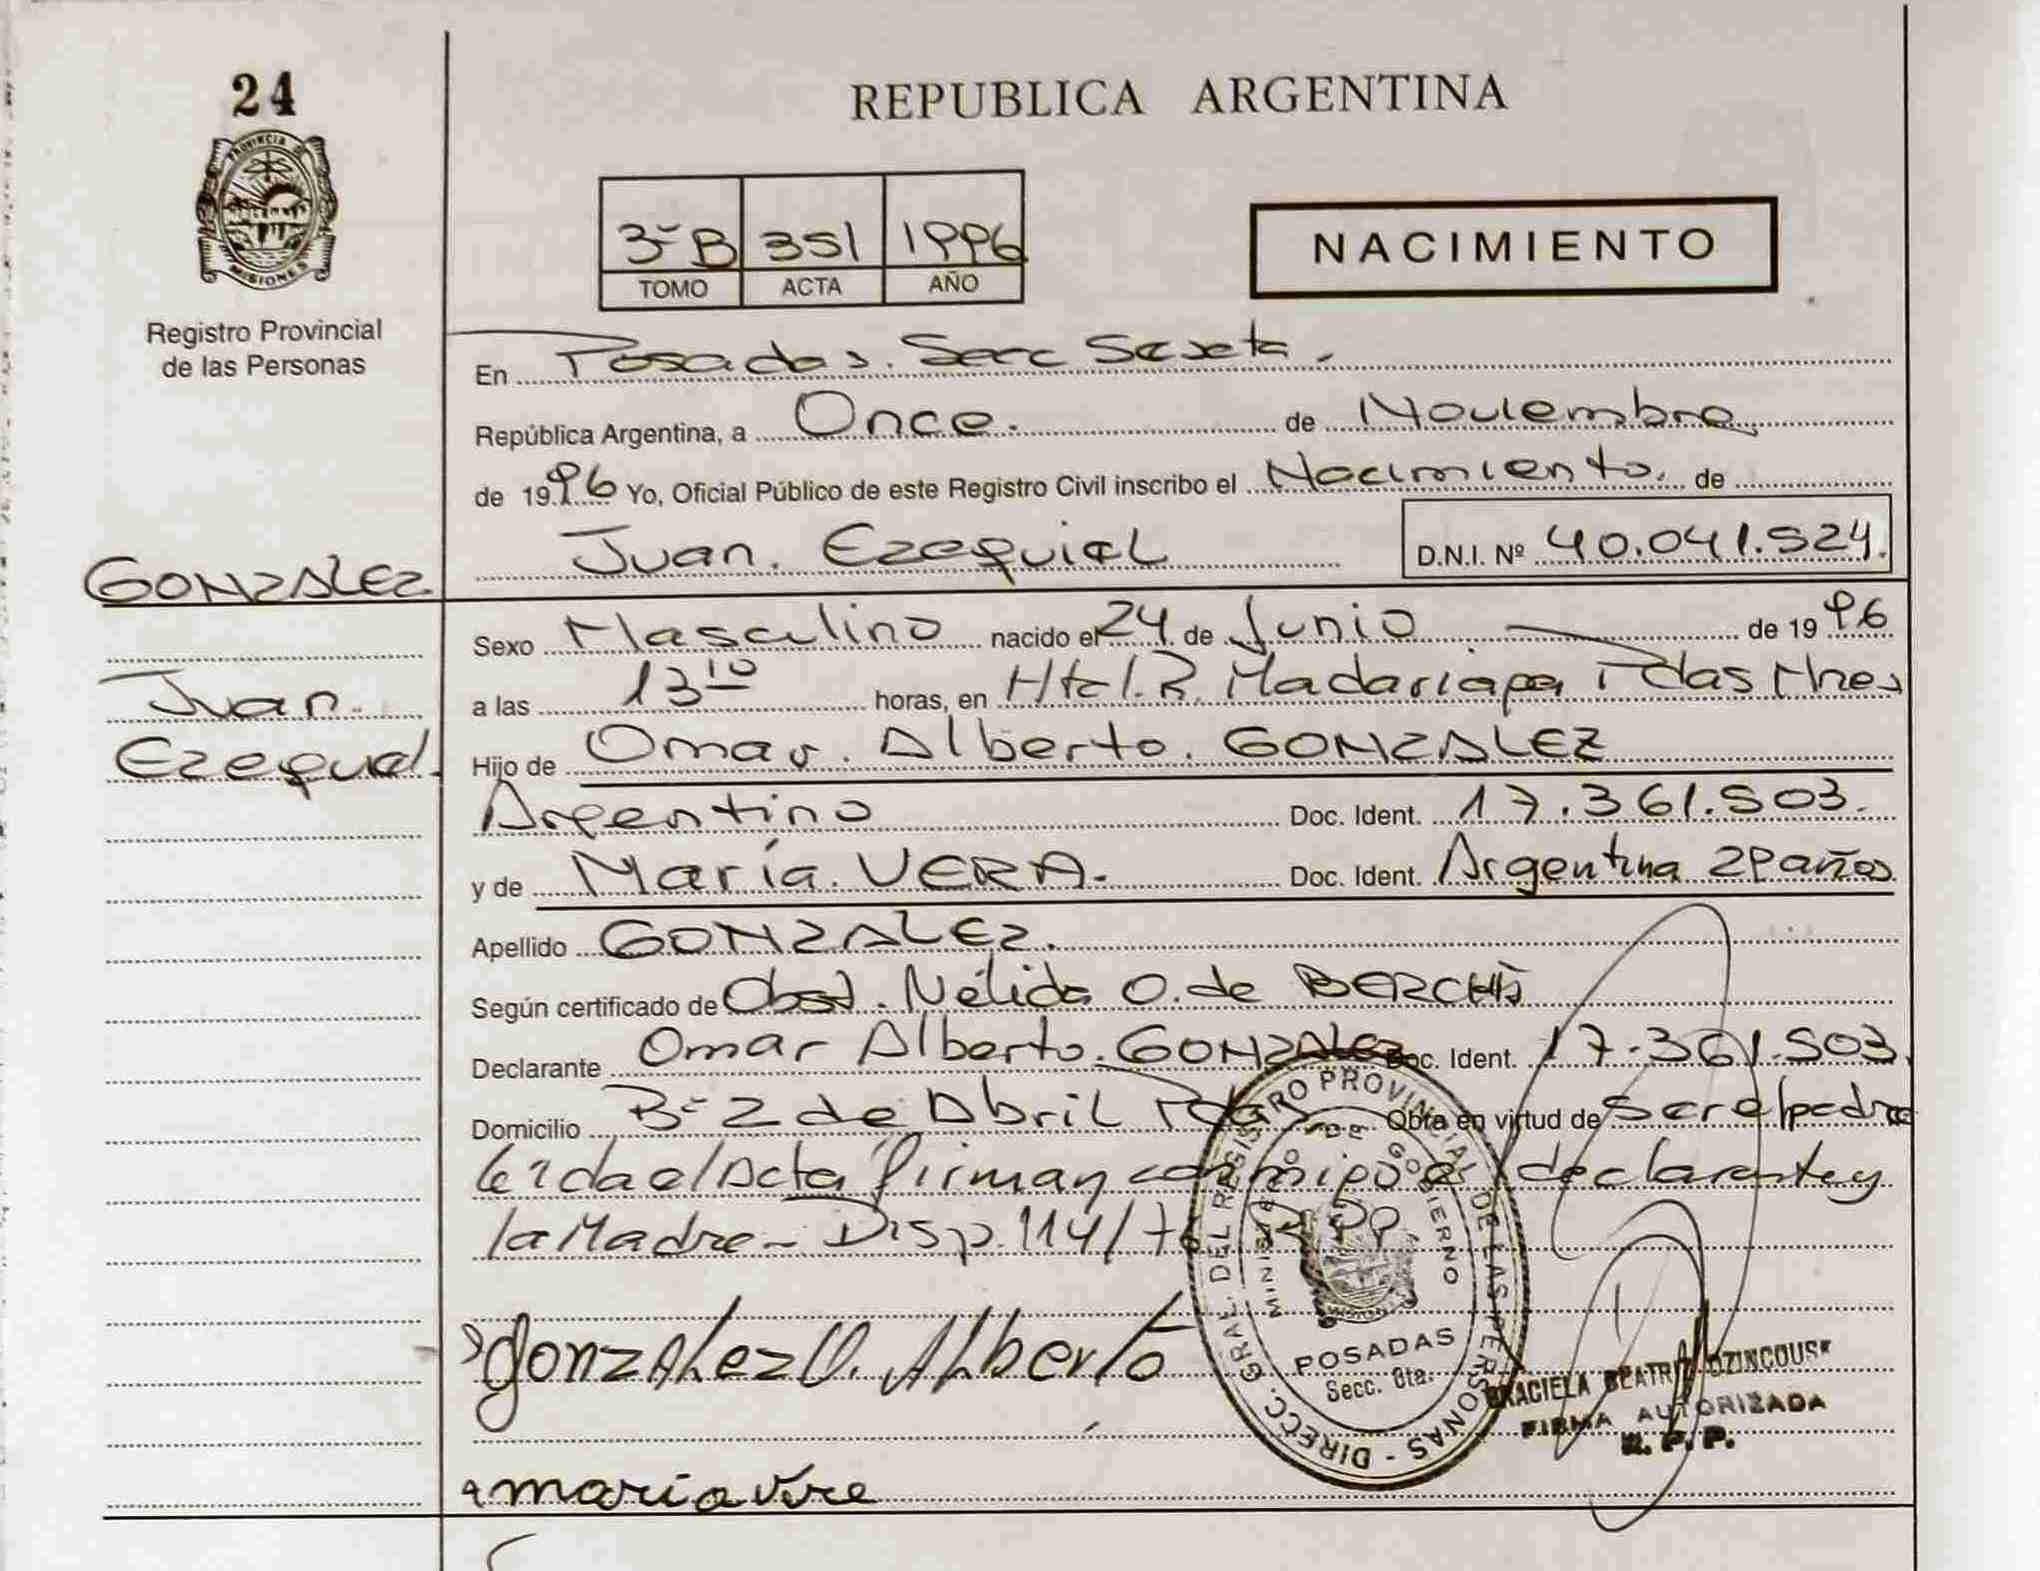 24
PROVINCIA DE
MISIONES
Registro Provincial
de las Personas
GONZALEZ
Juan.
Ezequiel.
REPUBLICA ARGENTINA
3º B 351 1996
TOMO ACTA AÑO
NACIMIENTO
En Posadas. Secc Sexta.
República Argentina, a Once. de Noviembre
de 1996 Yo, Oficial Público de este Registro Civil inscribo el Nacimiento. de
Juan. Ezequiel D.N.I. Nº 40.041.524.
Sexo Masculino nacido el 24 de Junio de 1996
a las 13 10 horas, en Htal. R. Madariaga Pdas Mnes
Hijo de Omar. Alberto. GONZALEZ
Argentino Doc. Ident. 17.361.503.
y de María. VERA. Doc. Ident. Argentina 29 años
Apellido GONZALEZ.
Según certificado de Obst. Nélida O. de
Declarante Omar Alberto. GONZALEZ Doc. Ident. 17.361.503.
Domicilio Bº 2 de Abril Pdas Obra en virtud de ser el padre
leida el Acta firman conmigo el declarante y
la Madre - Disp. 114/
Gonzalez O. Alberto
maria vera
DIRECC. GRAL. DEL REGISTRO PROVINCIAL DE LAS PERSONAS -
MINISTERIO DE GOBIERNO
POSADAS
Secc. 6ta.
GRACIELA BEATRIZ
FIRMA AUTORIZADA
R. P. P.